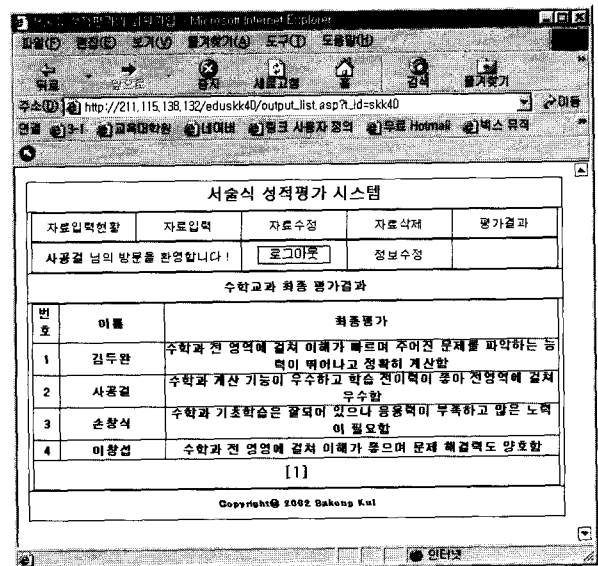 Microsoft Internet Explorer
파일(F) 편집(E) 보기(V) 즐겨찾기(A) 도구(T) 도움말(H)
뒤로 앞으로 중지 새로고침 홈 검색 즐겨찾기
주소(D) http://211,115,138,132/eduskk40/output_list,asp?t_id=skk40 이동
연결 3-1 교육대학원 네이버 링크 사용자 정의 무료 Hotmail 벅스 뮤직
서술식 성적평가 시스템
자료입력현황 자료입력 자료수정 자료삭제 평가결과
사공걸 님의 방문을 환영합니다 ! 로그아웃 정보수정
수학교과 최종 평가결과
번호 이름 최종평가
1 김두완 수학과 전 영역에 걸쳐 이해가 빠르며 주어진 문제를 파악하는 능
력이 뛰어나고 정확히 계산함
2 사공걸 수학과 계산 기능이 우수하고 학습 전이력이 좋아 전영역에 걸쳐
우수함
3 손창식 수학과 기초학습은 잘되어 있으나 응용력이 부족하고 많은 노력
이 필요함
4 이창섭 수학과 전 영영에 걸쳐 이해가 좋으며 문제 해결력도 양호함
[1]
Copyright@ 2002 Sakong Kul
인터넷